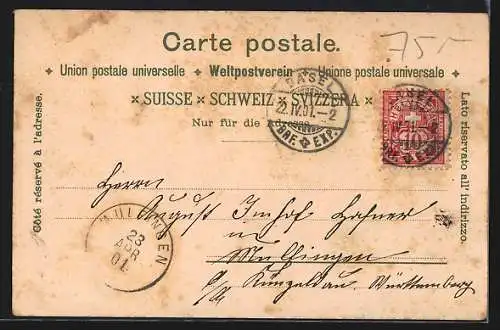 Carte postale.
75.-
Union postale universelle Weltpostverein Unione postale universale
SUISSE × SCHWEIZ × SVIZZERA
Nur für die Adresse
Côté réservé à l'adresse.
Lato riservato all' indirizzo.
BASEL
22.IV.01.-2
BRF. EXP.
BASEL
Herrn
August Imhof Hafner
in
Mulfingen
Künzelsau. Württemberg
MULFINGEN
23
APR
01